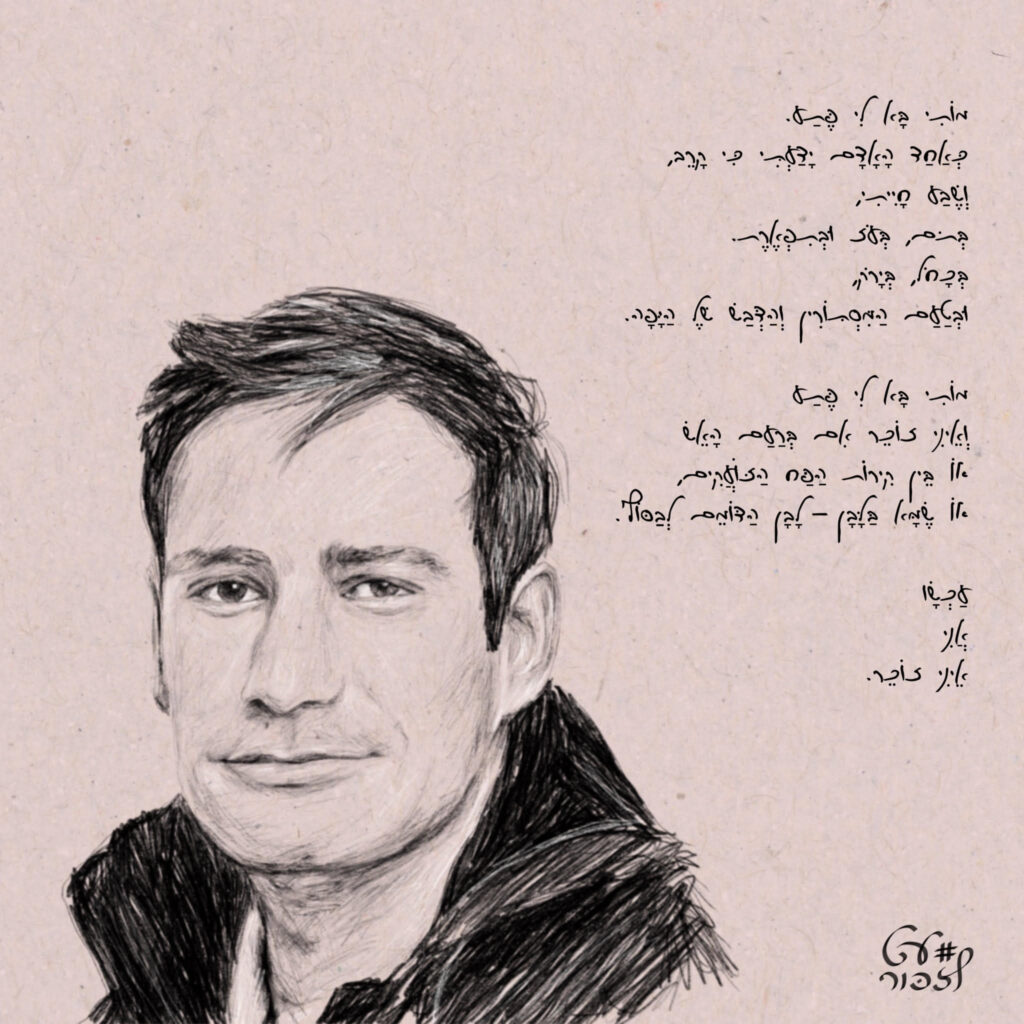 מוֹתִי בָּא לִי פֶּתַע.
כְּאַחַד הָאָדָם יָדַעְתִּי כִּי קָרֵב,
וְשֶׂבַע חָיִיתִי,
בְּתֹם, בְּעֹז וּבְתִפְאֶרֶת.
בְּכָחֹל, בְּיָרֹק,
וּבְטַעַם הַמִּסְתּוֹרִין וְהַדְּבַשׁ שֶׁל הַיָּפָה.
מוֹתִי בָּא לִי פֶּתַע
וְאֵינִי זוֹכֵר אִם בְּרַעַם הָאֵשׁ
אוֹ בֵּין קִירוֹת הַפַּח הַזּוֹעֲקִים,
אוֹ שֶׁמָּא בַּלָּבָן – לָבָן הַדּוֹמֵם לְבַסּוֹף.
עַכְשָׁו
אֲנִי
אֵינִי זוֹכֵר.
#עט
לזכור